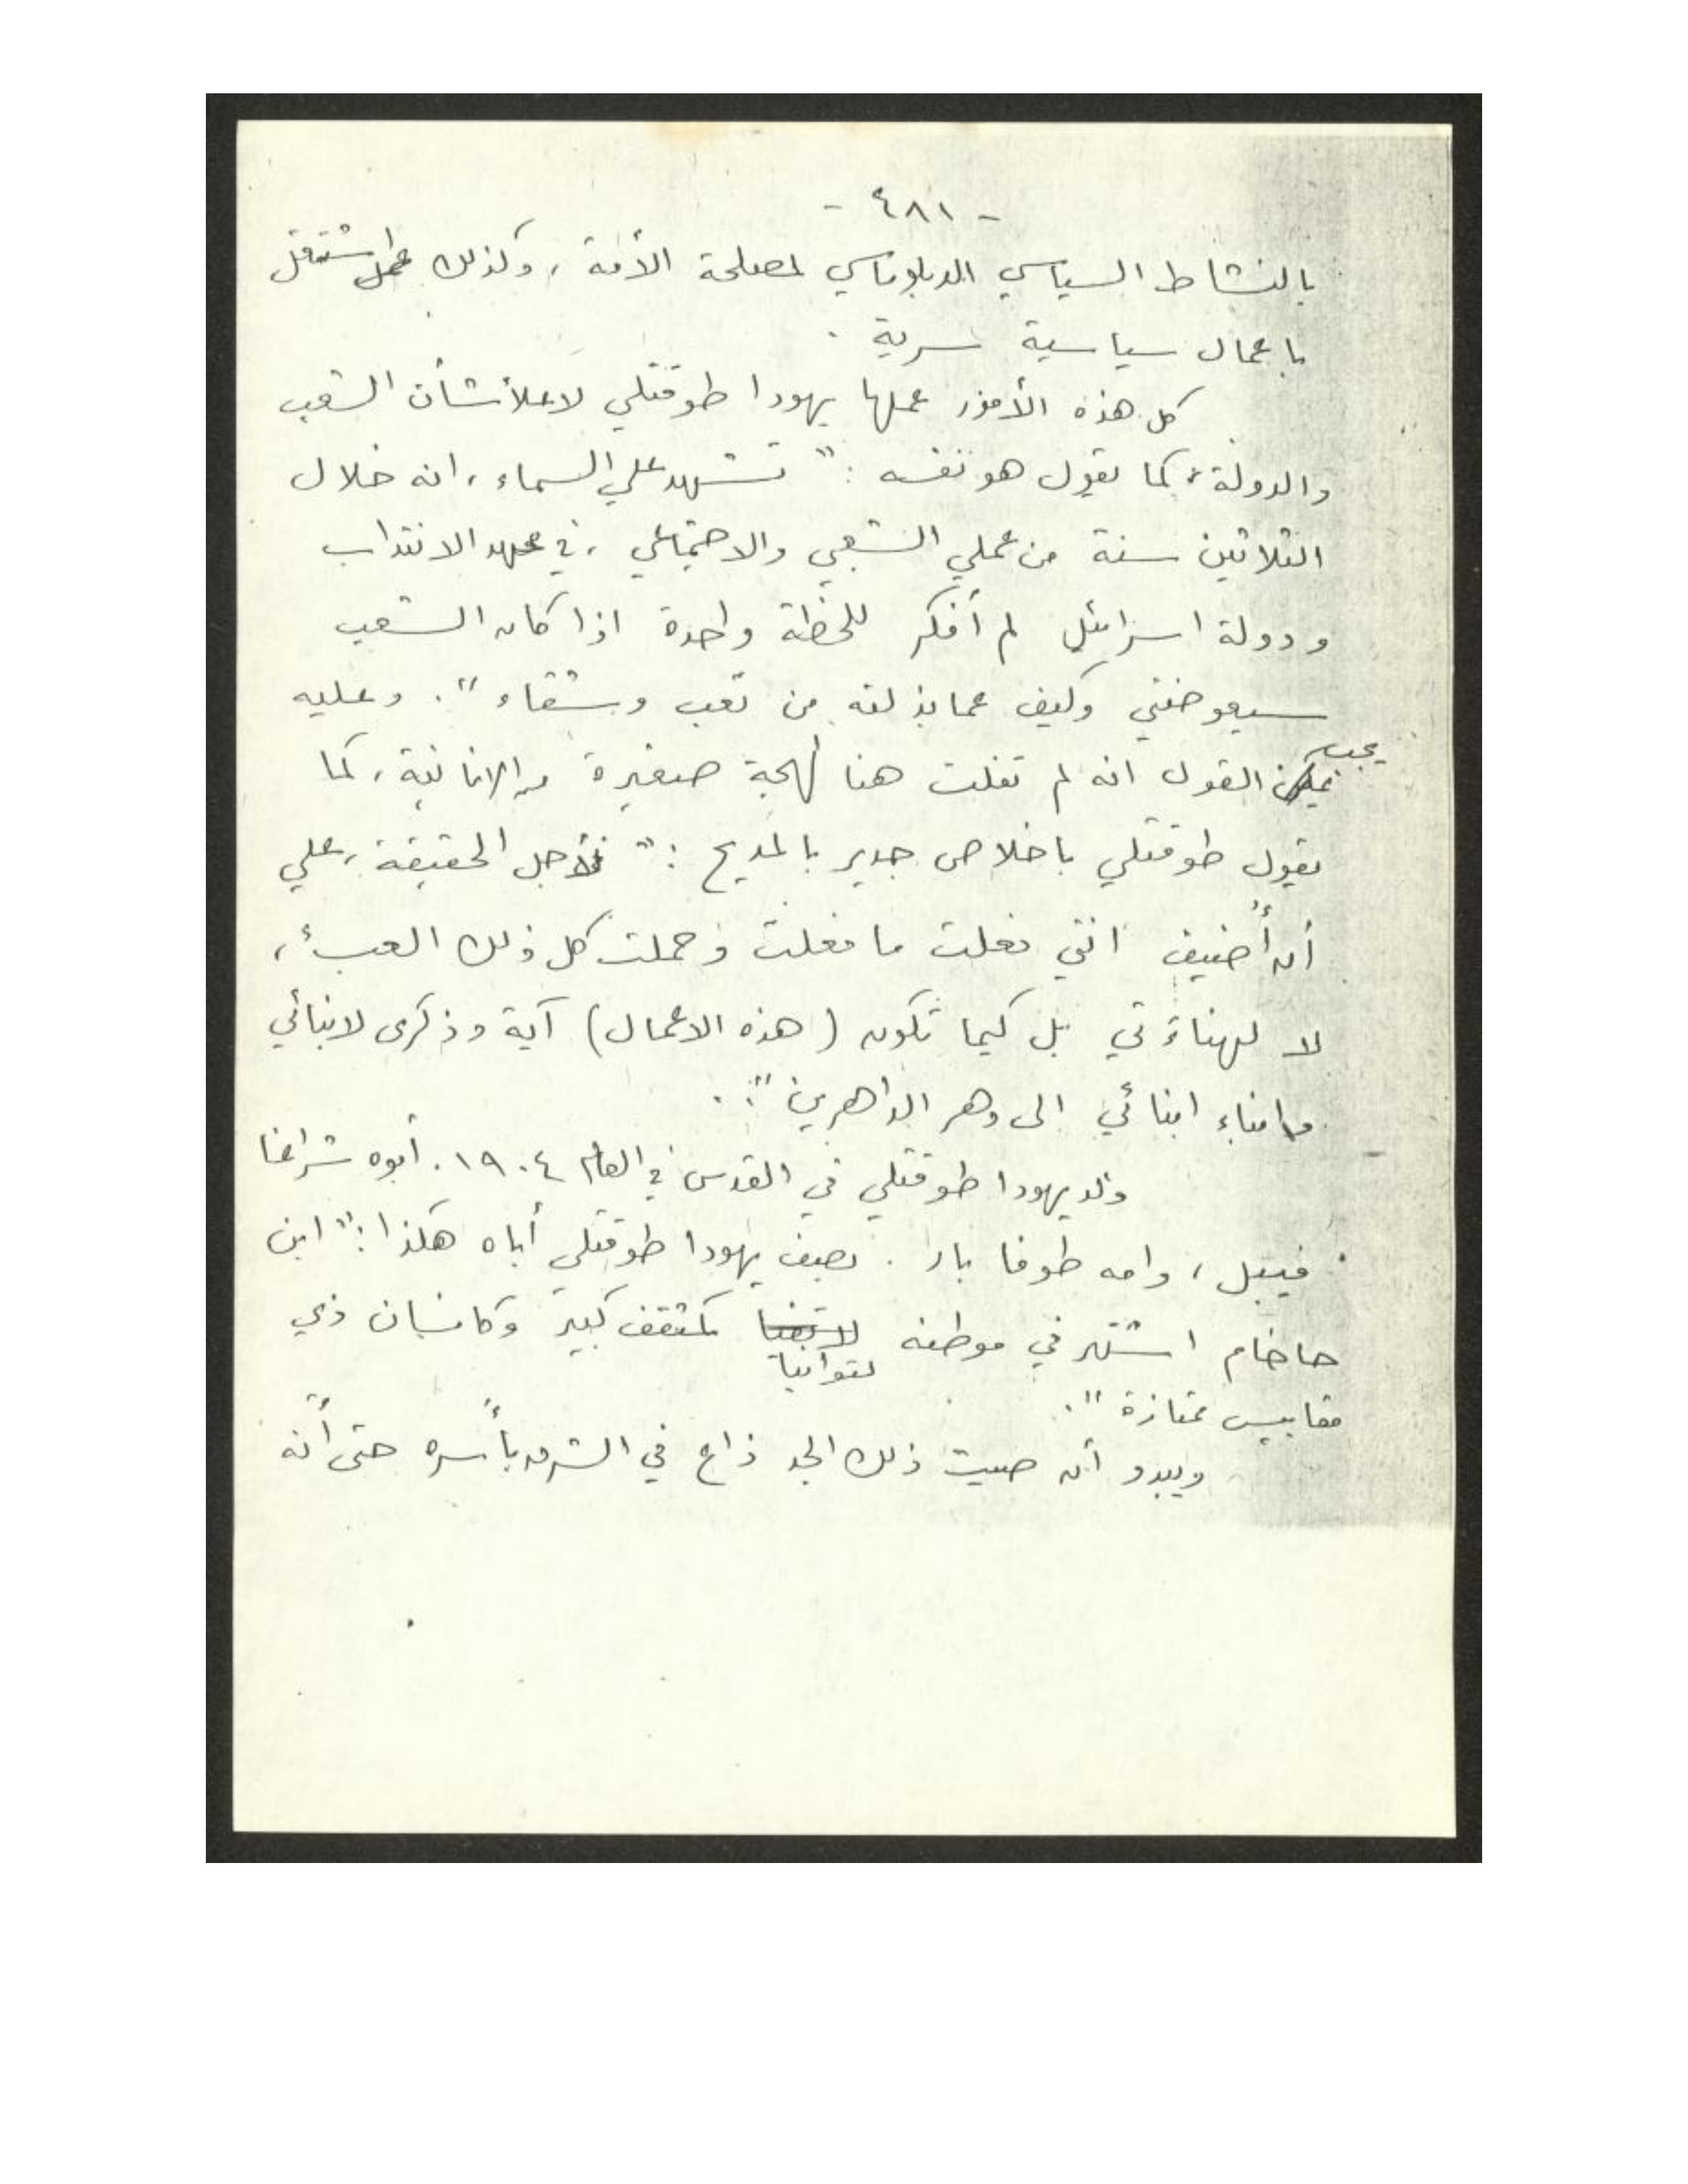 - ٤٨١ -
بالنشاط السياسي الدبلوماسي لمصلحة الأمة ، وكذلك اشتغل
باعمال سياسية سرية .
كل هذه الأمور عملها يهودا طوقتلي لاعلاء شأن الشعب
والدولة ، كما يقول هو نفسه : " تشهد علي السماء ، انه خلال
الثلاثين سنة من عملي الشعبي والاجتماعي ، في عهد الانتداب
ودولة اسرائيل لم أفكر للحظة واحدة اذا كان الشعب
سيعوضني وكيف عما بذلته من تعب وشقاء " . وعليه
يجب
القول انه لم تفلت هنا لهجة صغيرة من الانانية ، كما
يقول طوقتلي باخلاص جدير بالمديح : " لأجل الحقيقة ، علي
أن أضيف انني فعلت ما فعلت وحملت كل ذلك العبء ،
لا لهناءتي بل كيما تكون ( هذه الاعمال ) آية وذكرى لابنائي
وابناء ابنائي الى دهر الداهرين " .
ولد يهودا طوقتلي في القدس في العام ١٩٠٤ . أبوه شراغا
فيبل ، وامه طوفا بار . يصف يهودا طوقتلي أباه هكذا : " ابن
حاخام اشتهر في موطنه كمثقف كبير وكانسان ذي
لتوانيا
مقاييس ممتازة " .
ويبدو أن صيت ذلك الجد ذاع في الشرق بأسره حتى أنه